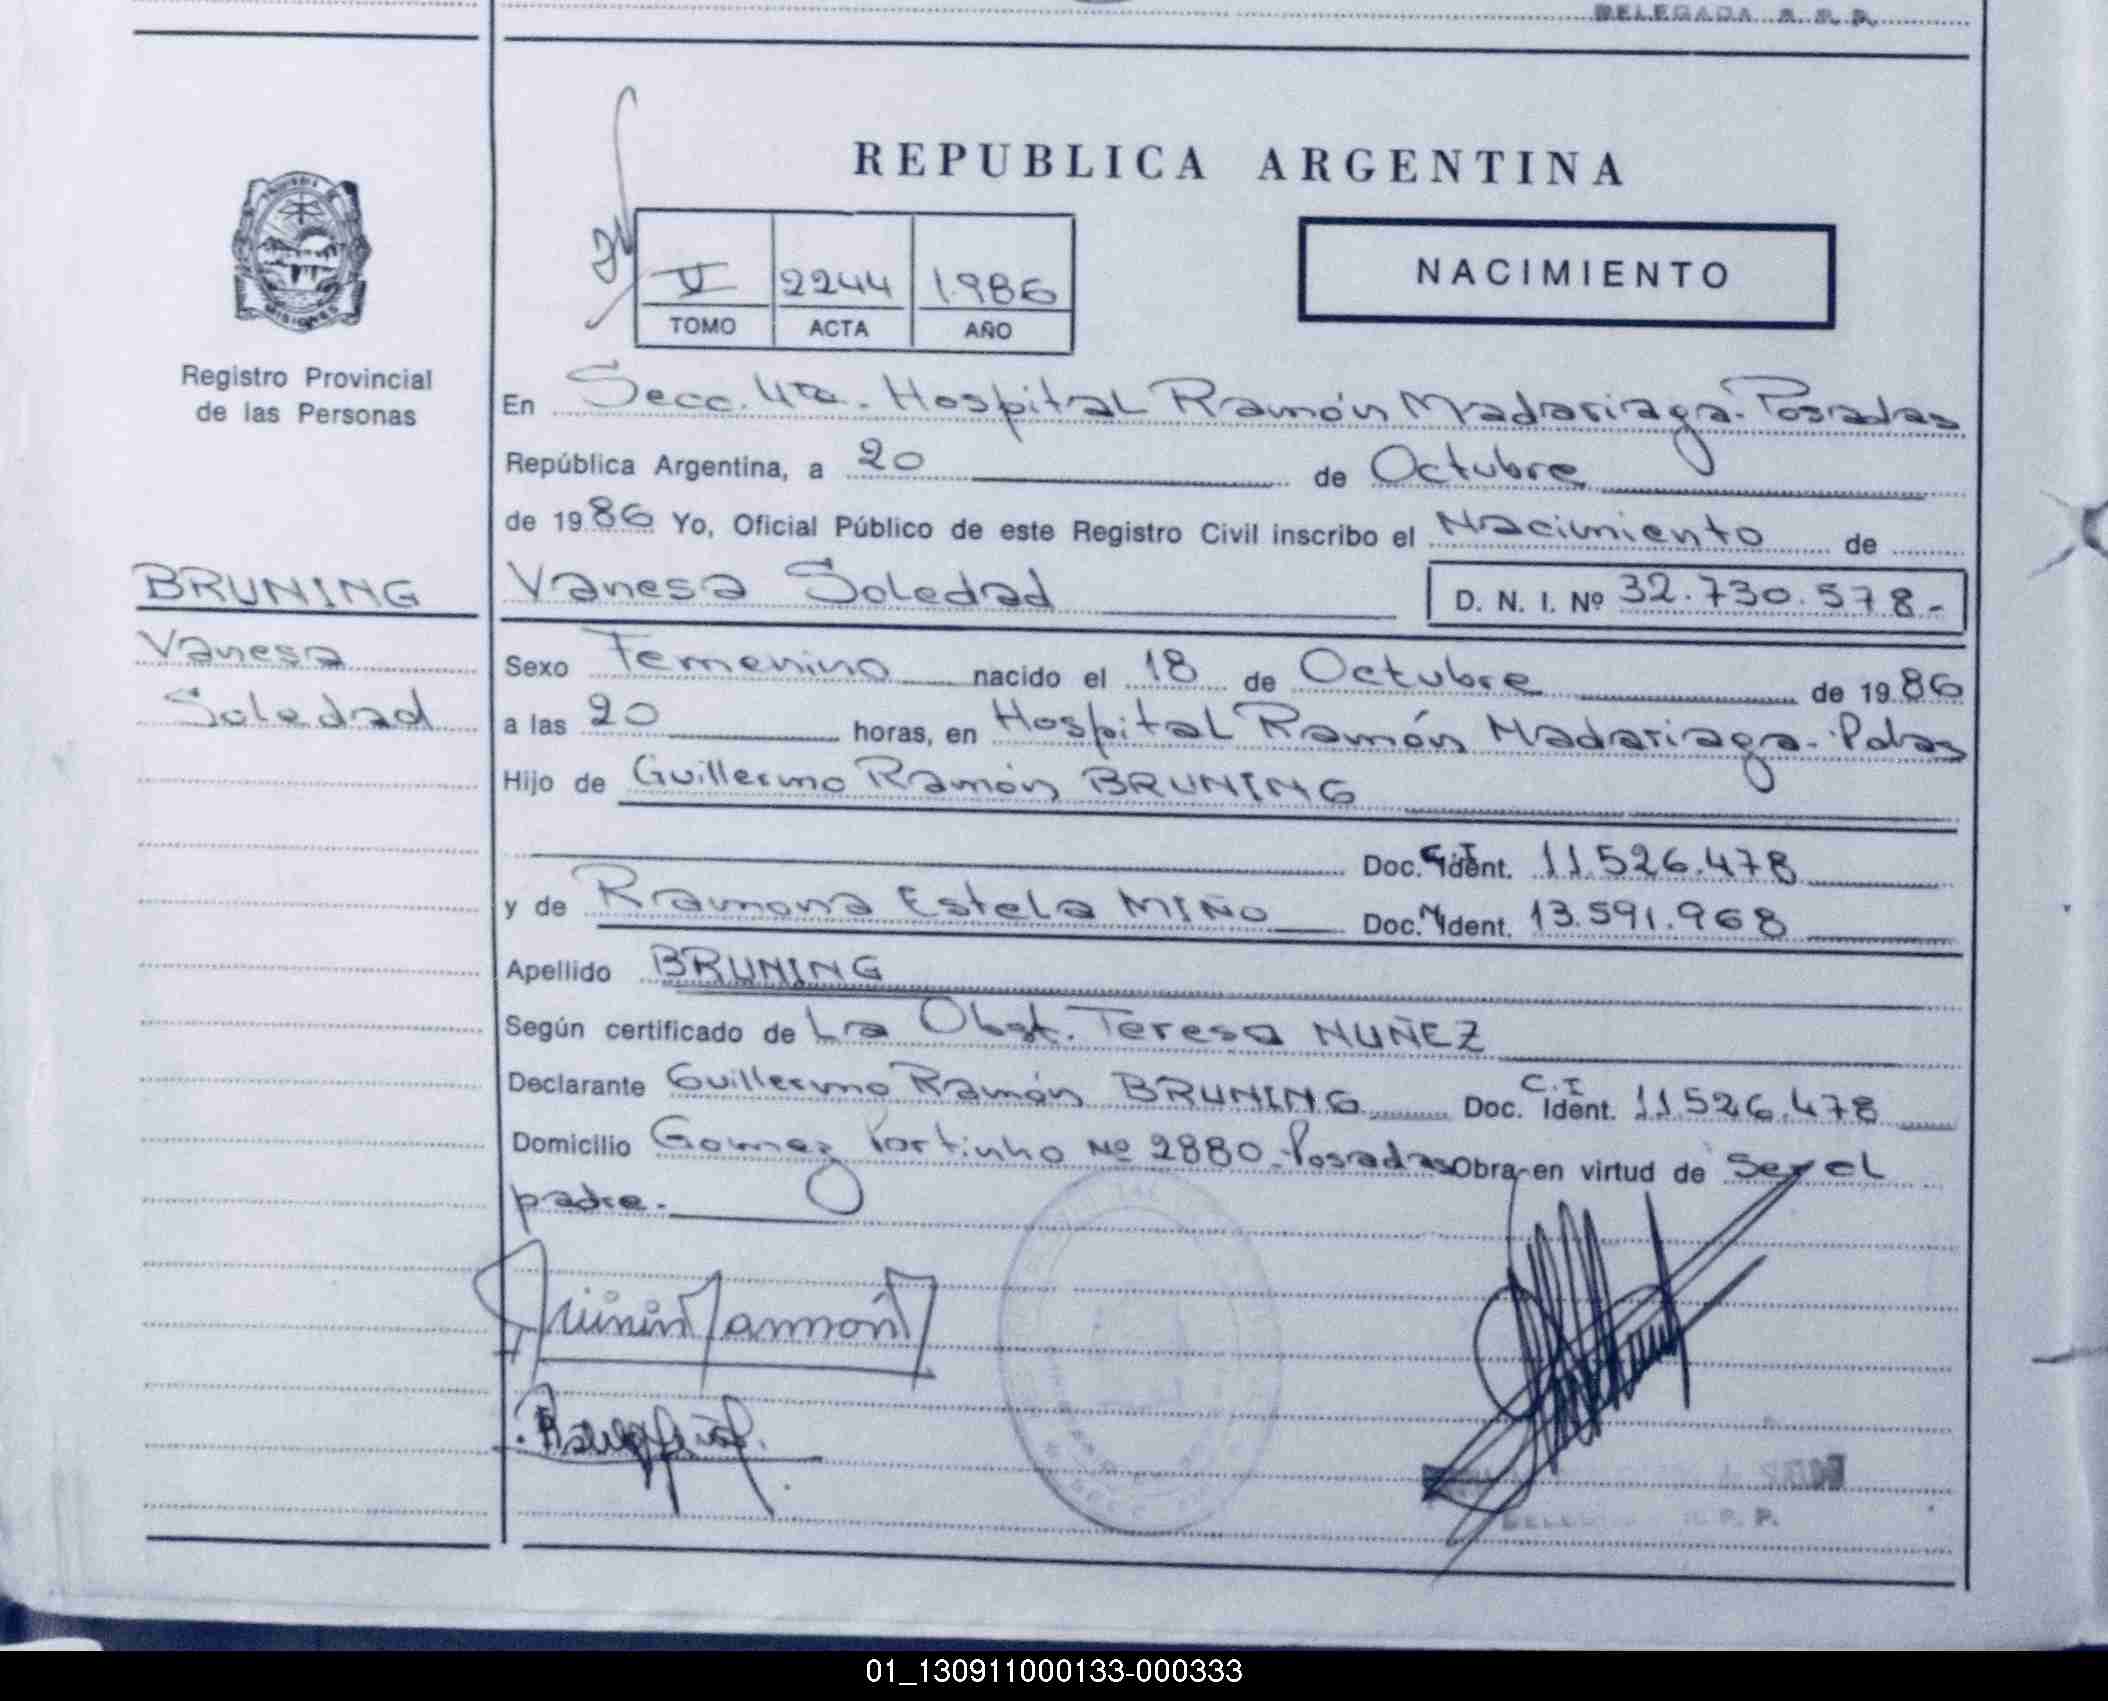 DELEGADA R. P. P.
REPUBLICA ARGENTINA
NACIMIENTO
V 2244 1986
TOMO ACTA AÑO
MISIONES
Registro Provincial
de las Personas
En Secc. 4ta. Hospital Ramón Madariaga. Posadas
República Argentina, a 20 de Octubre
de 1986 Yo, Oficial Público de este Registro Civil inscribo el Nacimiento de
BRUNING
Vanesa Soledad D. N. I. Nº 32.730.578.-
Vanesa
Soledad
Sexo Femenino nacido el 18 de Octubre de 1986
a las 20 horas, en Hospital Ramón Madariaga. Pdas
Hijo de Guillermo Ramón BRUNING
Doc. C.I Ident. 11.526.478
y de Ramona Estela MIÑO Doc. Ident. 13.591.968
Apellido BRUNING
Según certificado de La Obst. Teresa NUÑEZ
Declarante Guillermo Ramón BRUNING Doc. C.I Ident. 11526.478
Domicilio Gomez Portinho Nº 2880. Posadas Obra en virtud de ser el
padre.
R. P. P.
01_130911000133-000333